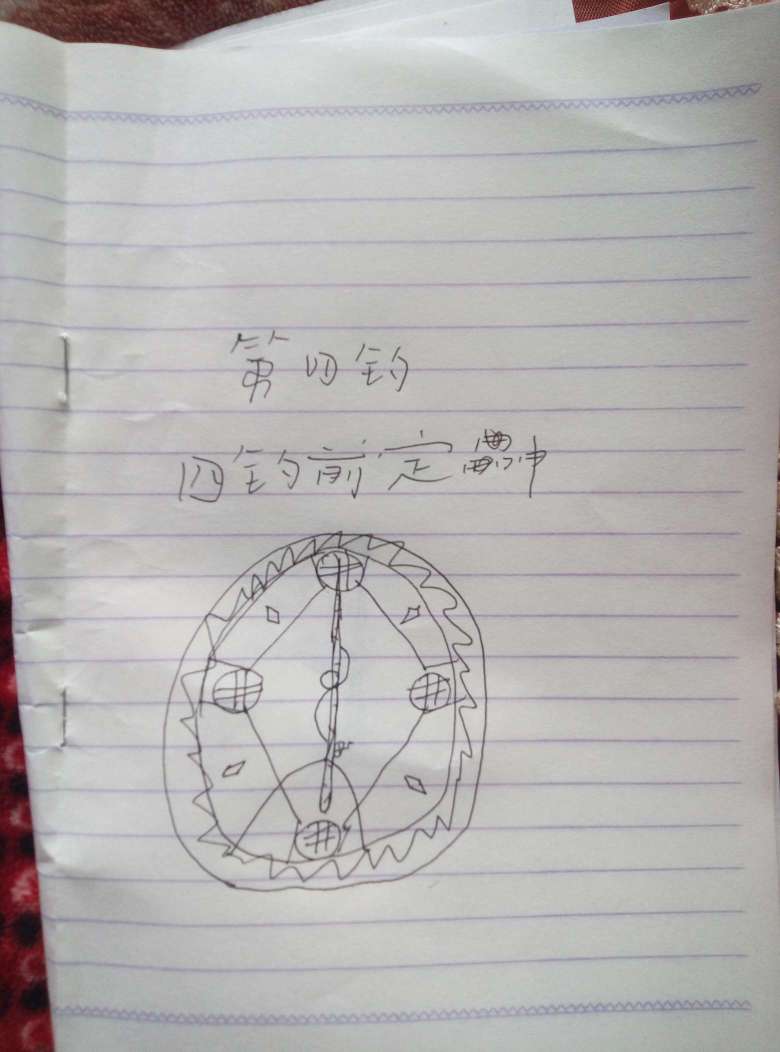 第四钓
四钓前定